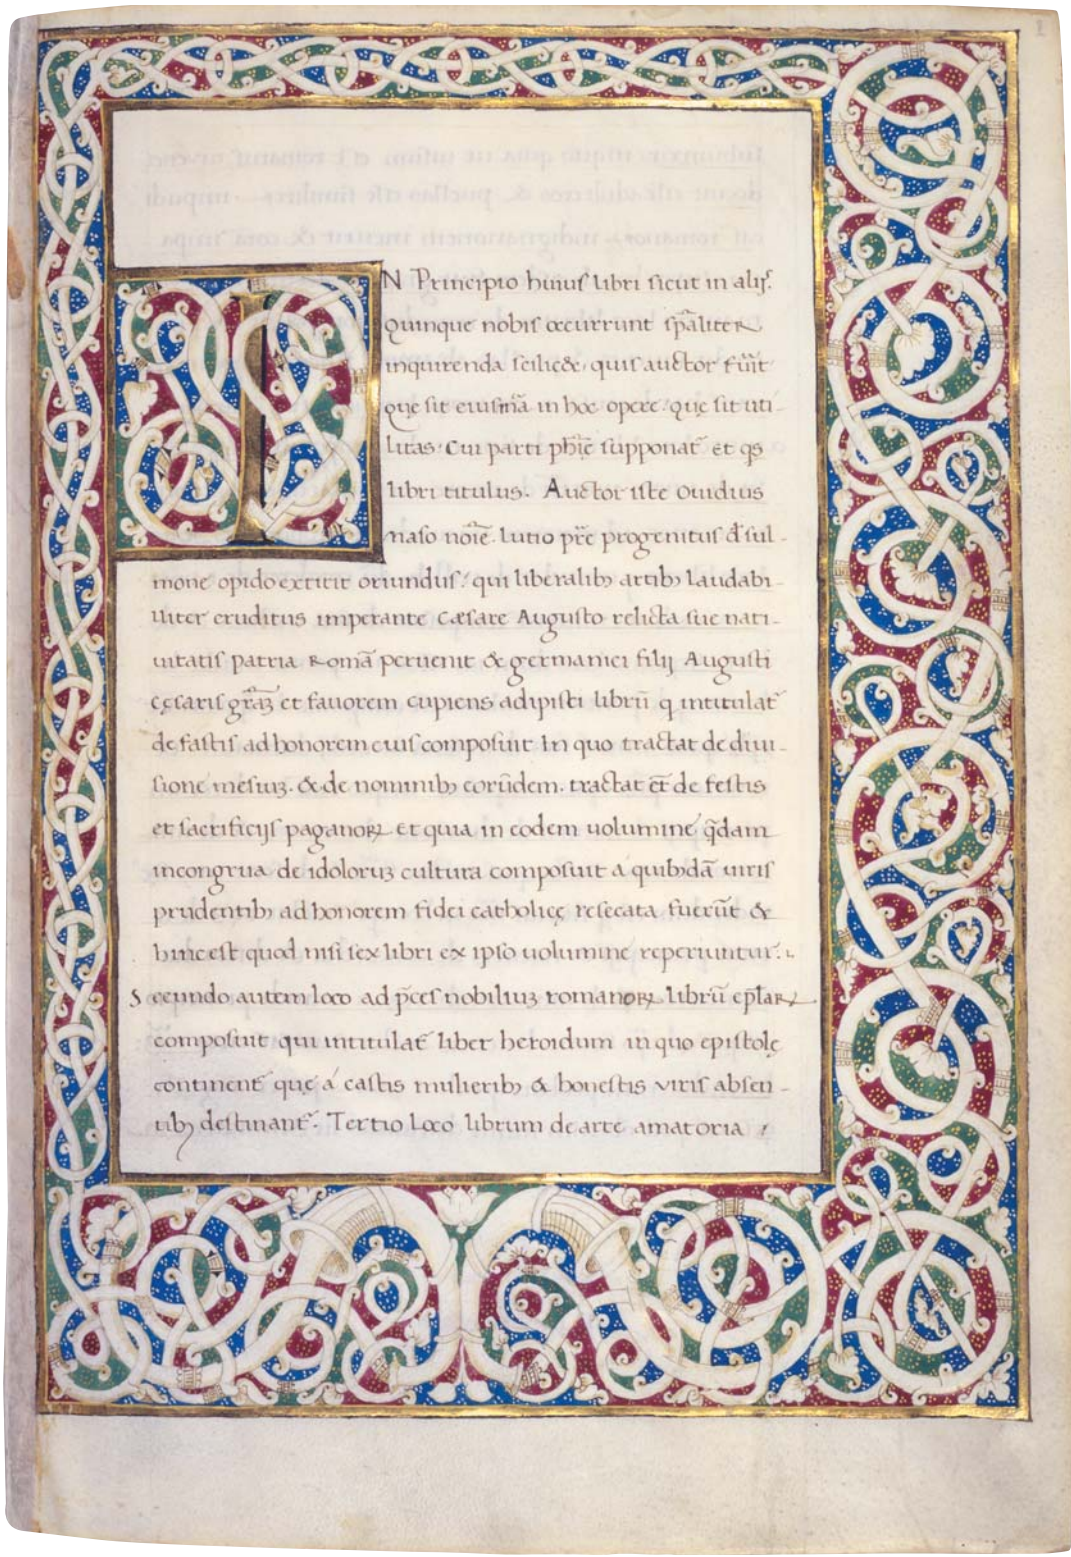 IN Principio huius libri sicut in alijs.
Quinque nobis occurrunt sp̄aliter
inquirenda scilicet, quis auctor fūit
quę sit eius mā in hoc opere. quę sit uti-
litas. Cui parti ph̄ię supponat̄ et q̄s
libri titulus. Auctor iste Ouidius
naso nōīe. Lutio pr̄e progenitus đ sul-
mone opido extitit oriundus: qui liberalibꝫ artibꝫ laudabi-
liter eruditus imperante Cæsare Augusto relicta sue nati-
uitatis patria Romā peruenit & germanici filij Augusti
cęsaris grāꝫ et fauorem cupiens adipisci librū q intitulat̄
de fastis ad honorem eius composuit In quo tractat de diui-
sione mesiuꝫ. & de nominibꝫ corūdem. tractat et̄ de festis
et sacrificijs paganoꝝ et quia in eodem uolumine q̄dam
incongrua de idoloruꝫ cultura composuit a quibꝫdā uiris
prudentibꝫ ad honorem fidei catholicę resecata fuerūt &
hinc est quod nisi sex libri ex ipso uolumine reperiuntur.
Secundo autem loco ad p̄ces nobiliuꝫ romanoꝝ librū ep̄laꝝ
composuit qui intitulat̄ liber heroidum in quo epistolę
continent̄ quę a castis mulieribꝫ & honestis viris absen-
tibꝫ destinant̄. Tertio loco librum de arte amatoria